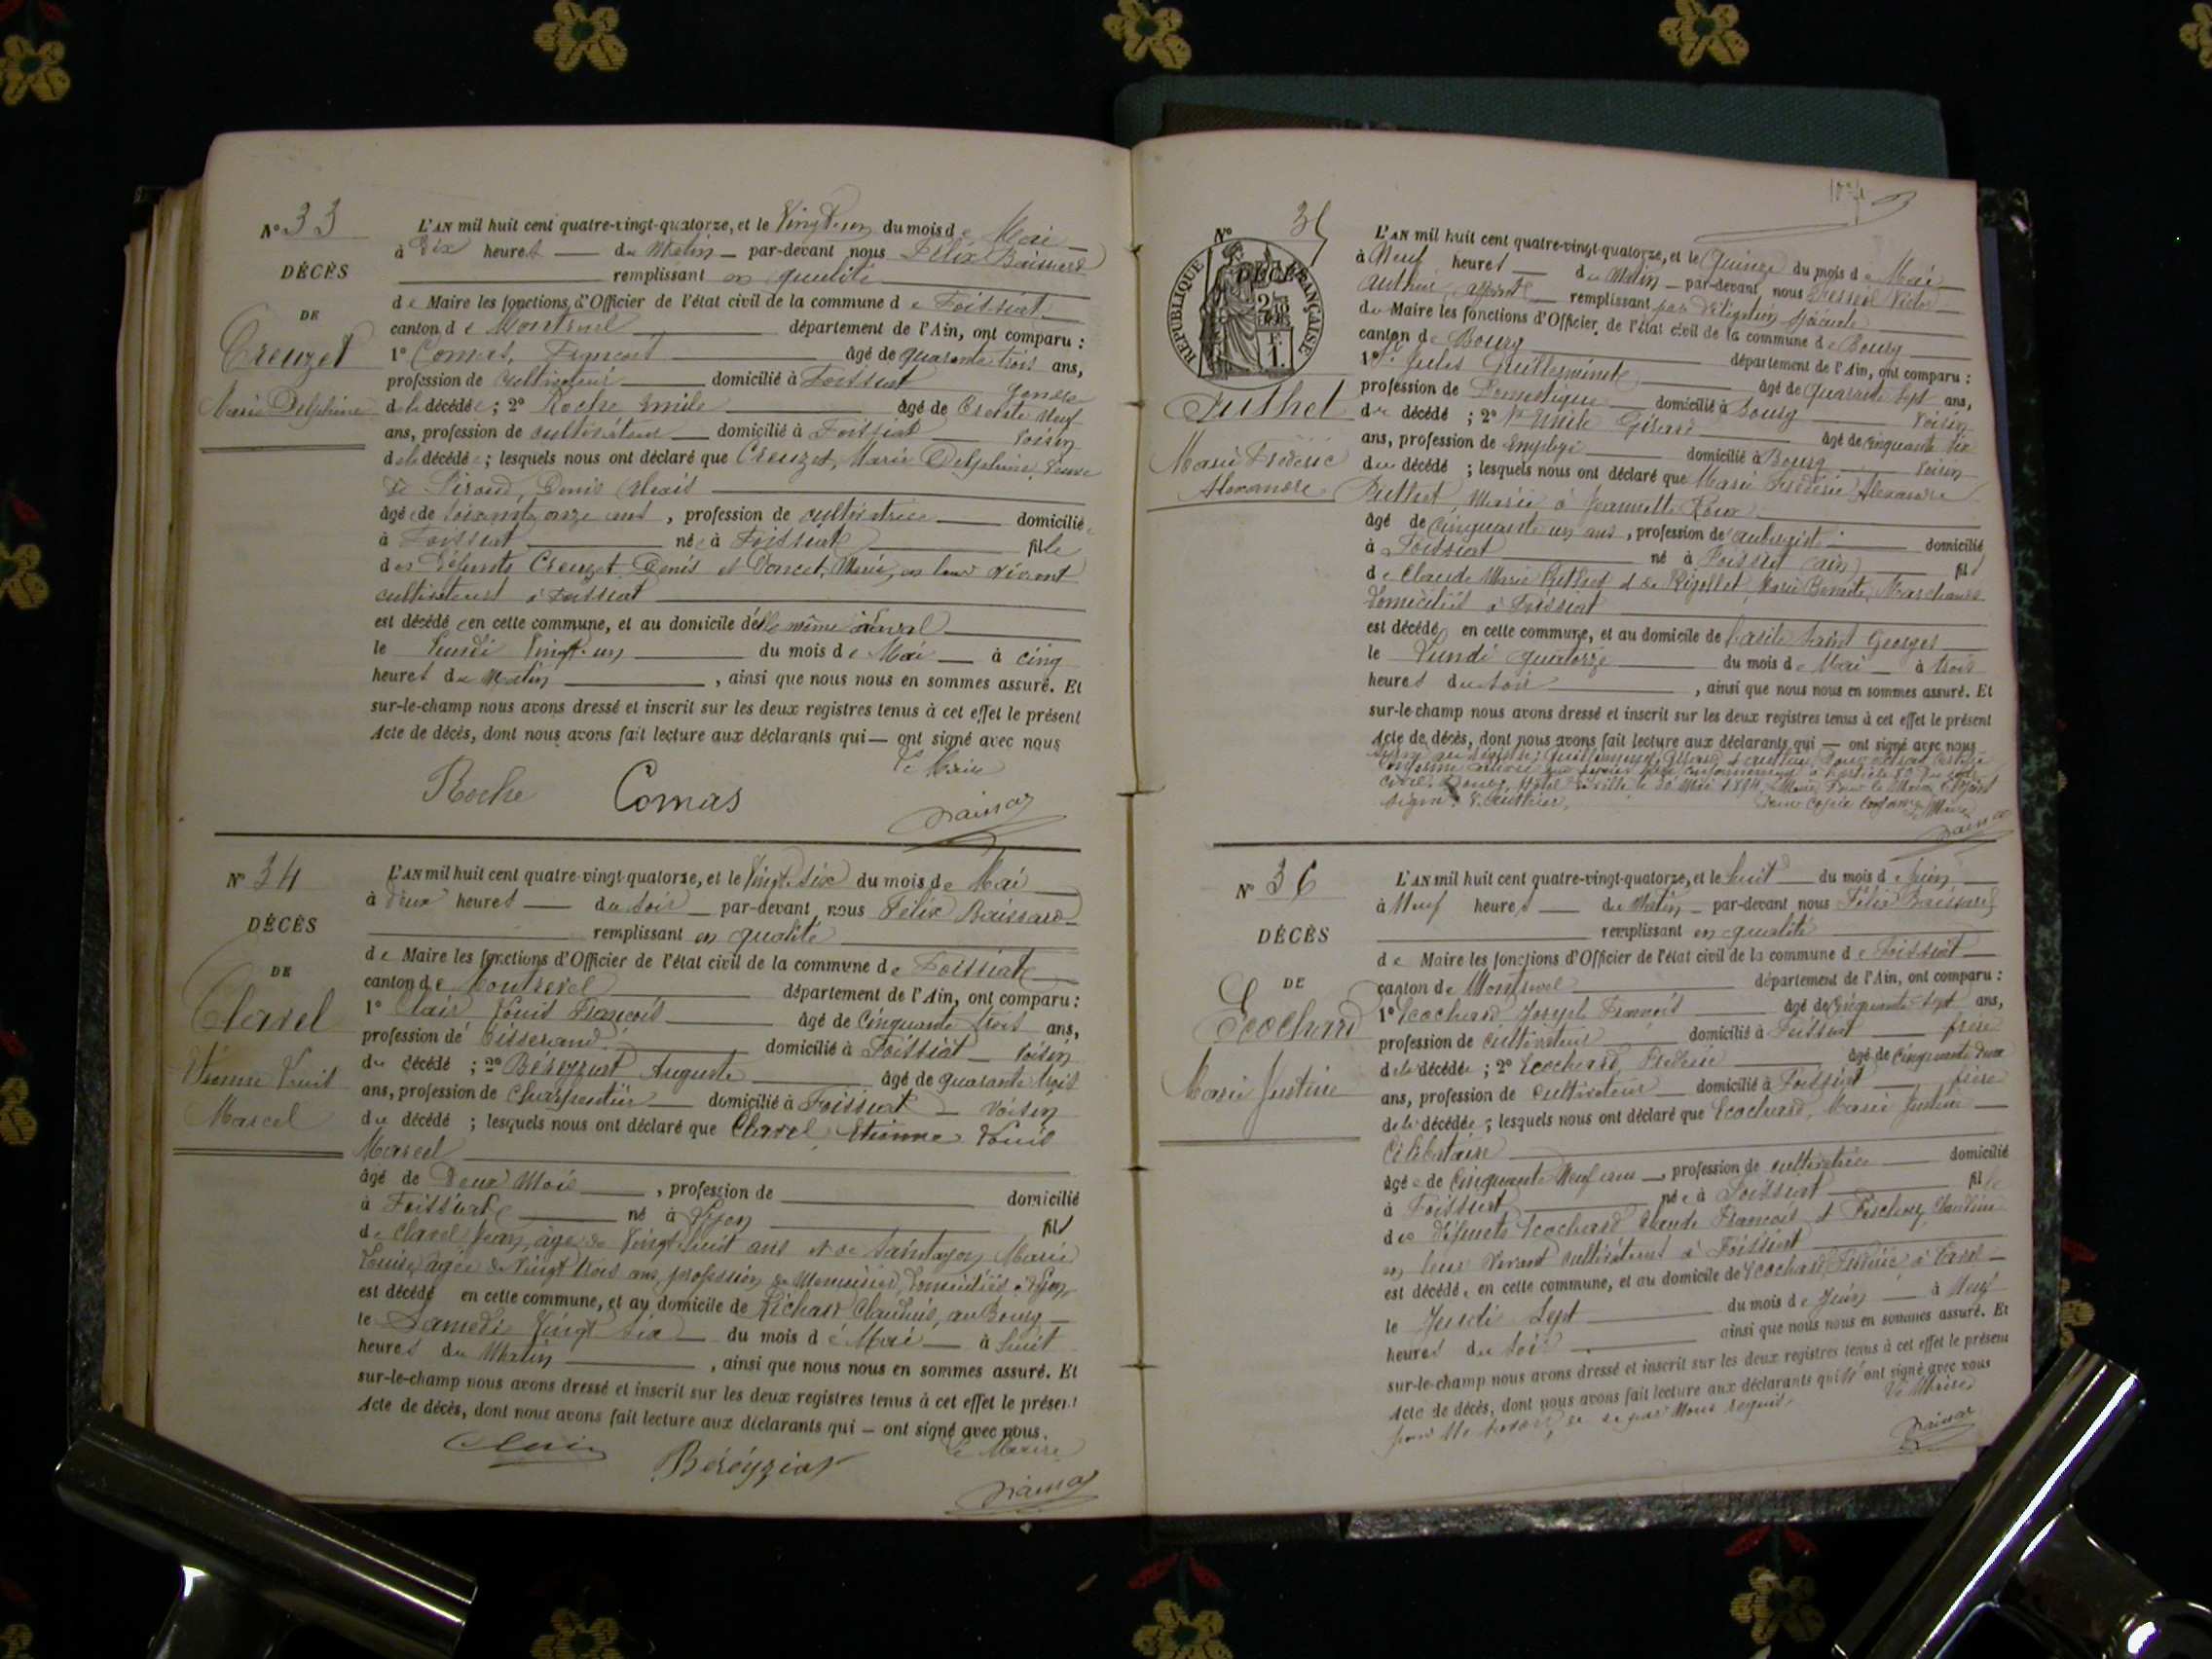 N° 33
DÉCÈS
DE
Creuzet
Marie Delphine
L'AN mil huit cent quatre-vingt-quatorze, et le Vingt un du mois de Mai
à Dix heures du Matin par-devant nous Félix Baissard
remplissant en qualité
de Maire les fonctions d'Officier de l'état civil de la commune de Foissiat
canton de Montrevel département de l'Ain, ont comparu :
1° Comas, François âgé de quarante trois ans,
profession de cultivateur domicilié à Foissiat gendre
de la décédée ; 2° Roche Emile âgé de trente neuf
ans, profession de cultivateur domicilié à Foissiat voisin
de la décédée ; lesquels nous ont déclaré que Creuzet, Marie Delphine, veuve
de Denis Alexis
âgée de soixante onze ans, profession de cultivatrice domiciliée
à Foissiat née à Foissiat fille
des défunts Creuzet Denis et Doncet, Marie, en leur vivant
cultivateurs à Foissiat
est décédée en cette commune, et au domicile d'elle même
le Lundi Vingt-un du mois de Mai à cinq
heures du Matin, ainsi que nous nous en sommes assuré. Et
sur-le-champ nous avons dressé et inscrit sur les deux registres tenus à cet effet le présent
Acte de décès, dont nous avons fait lecture aux déclarants qui — ont signé avec nous
Le Maire
Roche Comas
N° 34
DÉCÈS
DE
Clavel
Etienne Louis
Marcel
L'AN mil huit cent quatre-vingt-quatorze, et le Vingt-six du mois de Mai
à deux heures du soir par-devant nous Félix Baissard
remplissant en qualité
de Maire les fonctions d'Officier de l'état civil de la commune de Foissiat
canton de Montrevel département de l'Ain, ont comparu :
1° Clair Louis François âgé de cinquante trois ans,
profession de Tisserand domicilié à Foissiat voisin
du décédé ; 2° Béréyziat Auguste âgé de quarante trois
ans, profession de Charpentier domicilié à Foissiat voisin
du décédé ; lesquels nous ont déclaré que Clavel Etienne Louis
Marcel
âgé de Deux Mois, profession de domicilié
à Foissiat né à Lyon fils
de Clavel Jean, âgé de Vingt huit ans et de Marie
Louise, âgée de Vingt trois ans, profession de Menuisier, domiciliés à Lyon
est décédé en cette commune, et au domicile de Richard Claudius, au Bourg
le Samedi Vingt six du mois de Mai à huit
heures du Matin, ainsi que nous nous en sommes assuré. Et
sur-le-champ nous avons dressé et inscrit sur les deux registres tenus à cet effet le présent
Acte de décès, dont nous avons fait lecture aux déclarants qui — ont signé avec nous.
Le Maire
Clair Béréyziat
N° 35
DÉCÈS
RÉPUBLIQUE FRANÇAISE
Puthet
Marie Frédéric
Alexandre
L'AN mil huit cent quatre-vingt-quatorze, et le Quinze du mois de Mai
à Neuf heures du Matin par-devant nous Victor
Authier, adjoint remplissant par délégation spéciale
du Maire les fonctions d'Officier de l'état civil de la commune de Bourg
canton de Bourg département de l'Ain, ont comparu :
1° Jules Guillerminet âgé de quarante sept ans,
profession de Domestique domicilié à Bourg voisin
du décédé ; 2° Emile Girard âgé de cinquante six
ans, profession de Employé domicilié à Bourg voisin
du décédé ; lesquels nous ont déclaré que Marie Frédéric Alexandre
Puthet, Marié à Jeannette Roux
âgé de cinquante un ans, profession de aubergiste domicilié
à Foissiat né à Foissiat (ain) fils
de Claude Marie Puthet et de Marie Benoite, Marchands
domiciliés à Foissiat
est décédé en cette commune, et au domicile de l'asile Saint Georges
le Lundi quatorze du mois de Mai à trois
heures du soir, ainsi que nous nous en sommes assuré. Et
sur-le-champ nous avons dressé et inscrit sur les deux registres tenus à cet effet le présent
Acte de décès, dont nous avons fait lecture aux déclarants qui — ont signé avec nous
civil. Bourg, Hôtel de ville le 30 Mai 1894. Pour le Maire l'Adjoint
signé : V. Authier. Pour copie conforme, Le Maire
N° 36
DÉCÈS
DE
Ecochard
Marie Justine
L'AN mil huit cent quatre-vingt-quatorze, et le huit du mois de Juin
à Neuf heures du Matin par-devant nous Félix Baissard
remplissant en qualité
de Maire les fonctions d'Officier de l'état civil de la commune de Foissiat
canton de Montrevel département de l'Ain, ont comparu :
1° Ecochard Joseph François âgé de cinquante sept ans,
profession de cultivateur domicilié à Foissiat frère
de la décédée ; 2° Ecochard, Frédéric âgé de cinquante deux
ans, profession de cultivateur domicilié à Foissiat frère
de la décédée ; lesquels nous ont déclaré que Ecochard, Marie Justine
Célibataire
âgée de cinquante Neuf ans, profession de cultivatrice domicilié
à Foissiat née à Foissiat fille
des défunts Ecochard Claude François et Claudine
en leur vivant cultivateurs à Foissiat
est décédée en cette commune, et au domicile de Ecochard Frédéric à
le Jeudi Sept du mois de Juin à Neuf
heures du soir ainsi que nous nous en sommes assuré. Et
sur-le-champ nous avons dressé et inscrit sur les deux registres tenus à cet effet le présent
Acte de décès, dont nous avons fait lecture aux déclarants qui n'ont signé avec nous
pour ne savoir, de ce par nous requis.
Le Maire